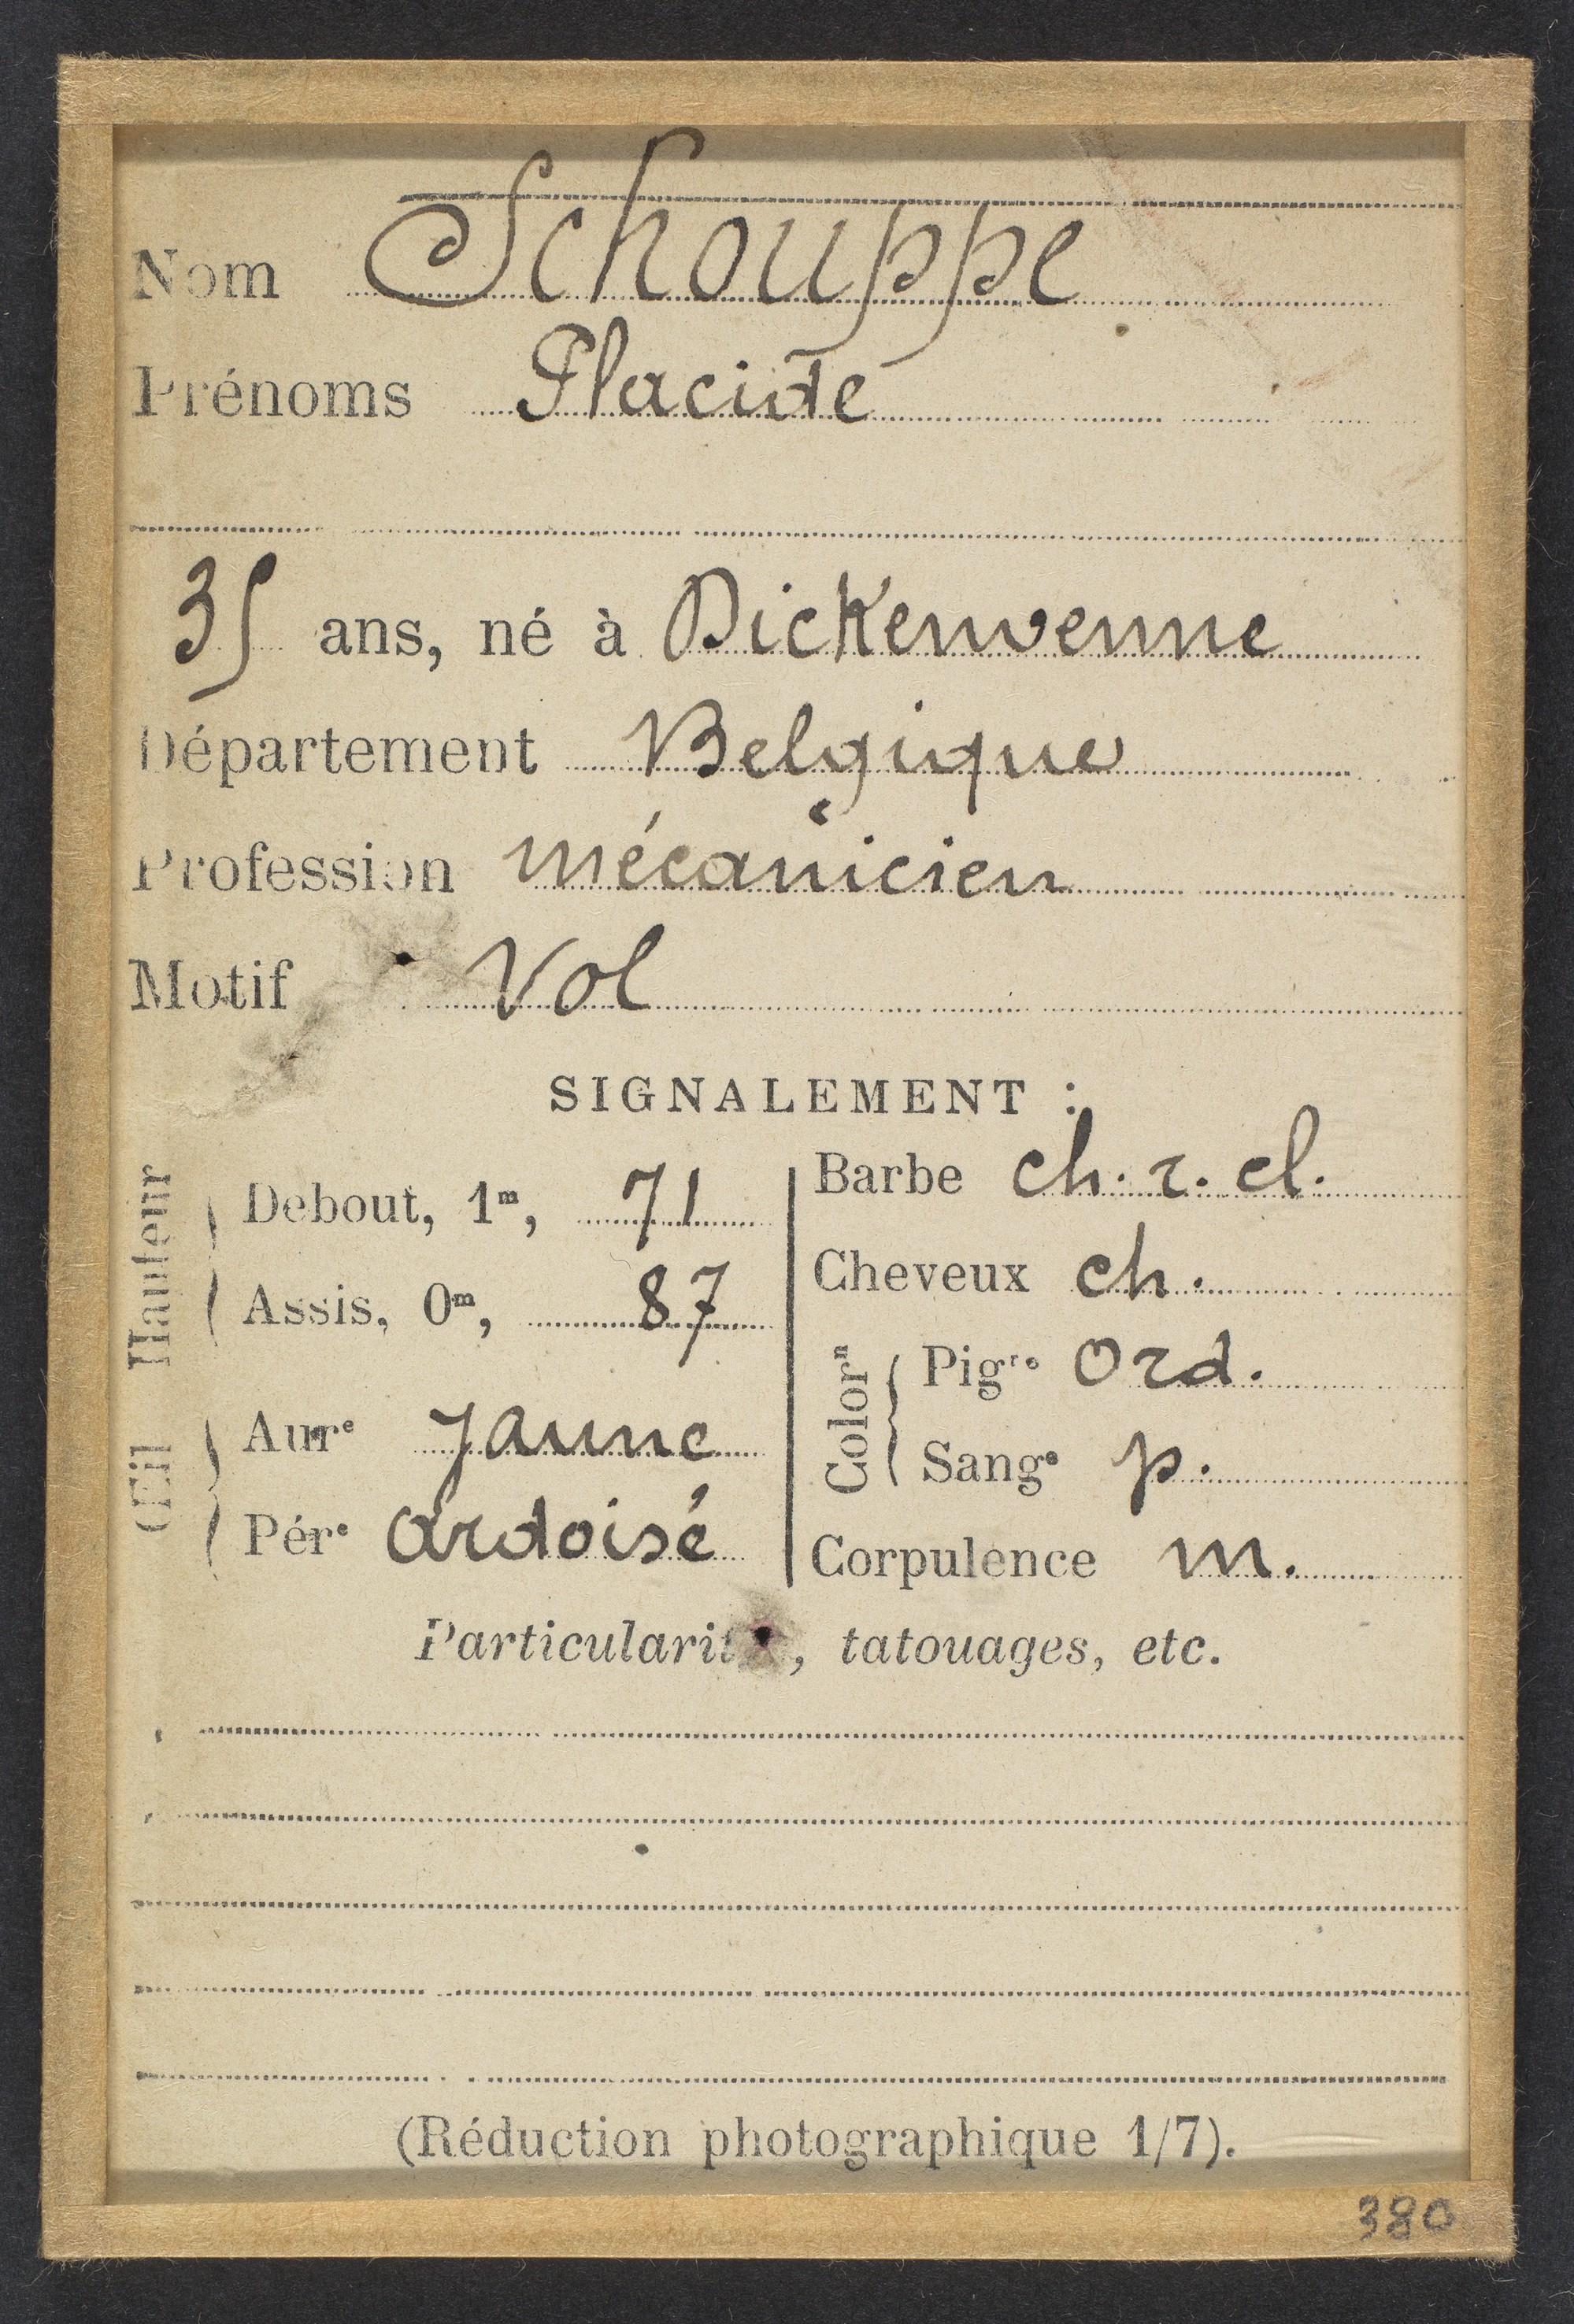 Nom Schouppe
Prénoms Placide
35 ans, né à Dickenvenne
Département Belgique
Profession mécanicien
Motif Vol
SIGNALEMENT :
Hauteur
Debout, 1m, 71
Assis, 0m, 87
Œil
Aure Jaune
Pére ardoisé
Barbe ch. r. cl.
Cheveux ch.
Colorn
Pigre Ord.
Sange p.
Corpulence m.
Particularit , tatouages, etc.
(Réduction photographique 1/7).
380